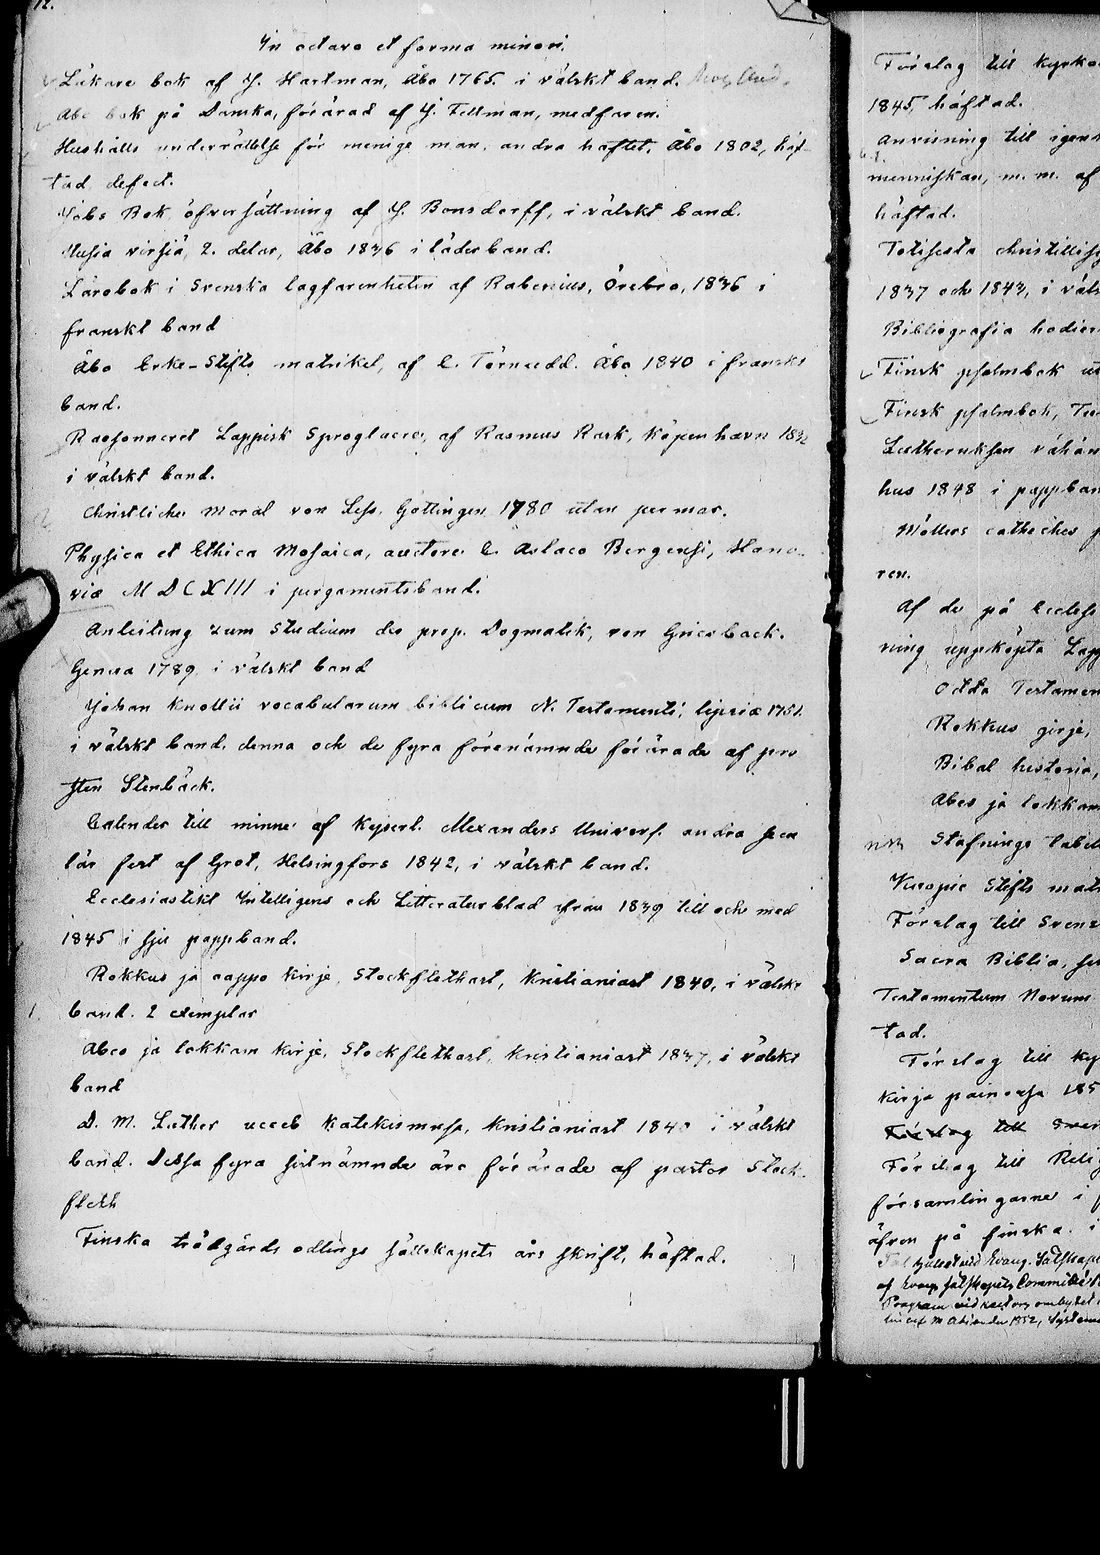 12.
In octavo et forma minori.
Läkare bok af J. Hartman, Åbo 1765. i välskt band.
Abc bok på Danska, förärad af J. Fellman, medfaren.
Hushålls underrättelse för menige man, andra häftet, Åbo 1802, häf-
tad, defect.
Jobs Bok, öfversättning af J. Bonsdorff, i välskt band.
Uusia virsiä, 2. delar, Åbo 1836 i läderband.
Lärobok i Svenska lagfarenheten af Rabenius, Örebro, 1836 i
franskt band
Åbo Erke-Stifts matrikel, af C. Törnudd. Åbo 1840 i franskt
band.
Raesonneret Lappisk Sproglaere, af Rasmus Rask, Köpenhavn 1832
i välskt band.
Christliche Moral von Less, Göttingen 1780 utan permar.
Physica et Ethica Mosaica, auctore C. Aslaco Bergensi, Hano-
viæ MDCXIII i pergamentsband.
Anleitung zum Studium der pop. Dogmatik, von Griesbach.
Genua 1789, i välskt band
Johan Knollii vocabularum biblicum N. Testamenti, lipsiæ 1751.
i välskt band, denna och de fyra förenämnde förärade af pro
sten Stenbäck.
Calender till minne af Kejserl. Alexanders Univers. andra secu
lär fest af Grot, Helsingfors 1842, i välskt band.
Ecclesiastikt Intelligens och Litteraturblad från 1839 till och med
1845 i sju pappband.
Rokkus ja aappo kirje, Stockflethast, Kristianiast 1840, i välskt
1. band. 2 exemplar
Abes ja lokkam kirje, Stockflethast, Kristianiast 1837, i välskt
band
D. M. Luther ucceb Katekismusa, Kristianiast 1840 i välskt
band. Dessa fyra sistnämnde äro förärade af pastor Stock-
fleth
Finska trädgårds odlings sällskapets års skrift, häftad.
Förslag till kyrko
1845, häftad.
Anvisning till igen
menniskan, m. m. af
häftad.
Totisesta christillis
1837 och 1843, i väls
Bibliografia hodier
Finsk psalmbok ut
Finsk psalmbok, Tu
Lutheruksen vähän
hus 1848 i pappban
Möllers catheches
ren.
Af de på Eccless
ning uppköpta Lapp
Odda Testamen
Rokkus girje,
Bibal historia,
Abes ja lokkam
Stafnings tabell
Kuopio Stifts mat
Förslag till Svens
Sacra Biblia,
Testamentum Novum
tad.
Förslag till ky
kirja painossa 185
Förslag till Sven
Förslag till Reli
församlingarne i
äfven på finska. i